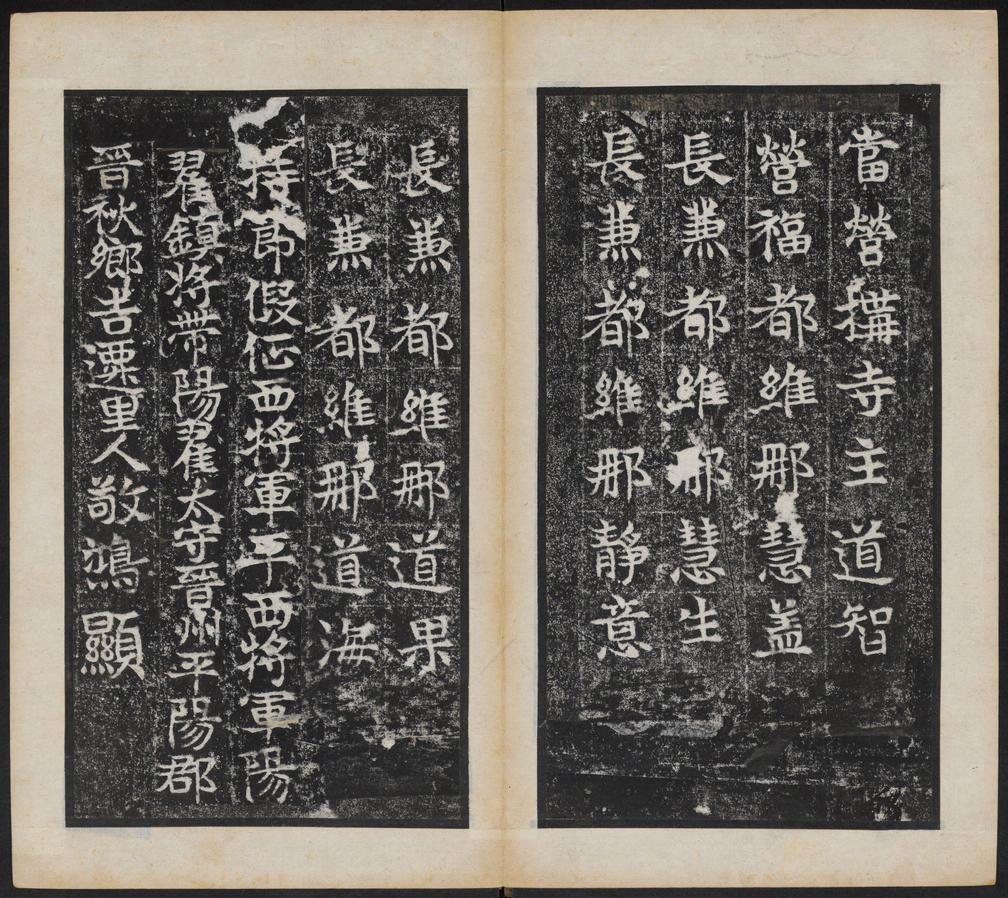 當營構寺主道智
營福都維那慧盖
長兼都維那慧生
長兼都維那靜意
長兼都維那道果
長兼都維那道海
持節假征西將軍平西將軍陽
翟鎮將帶陽翟太守晉州平陽郡
晉秋鄉吉遷里人敬鴻顯